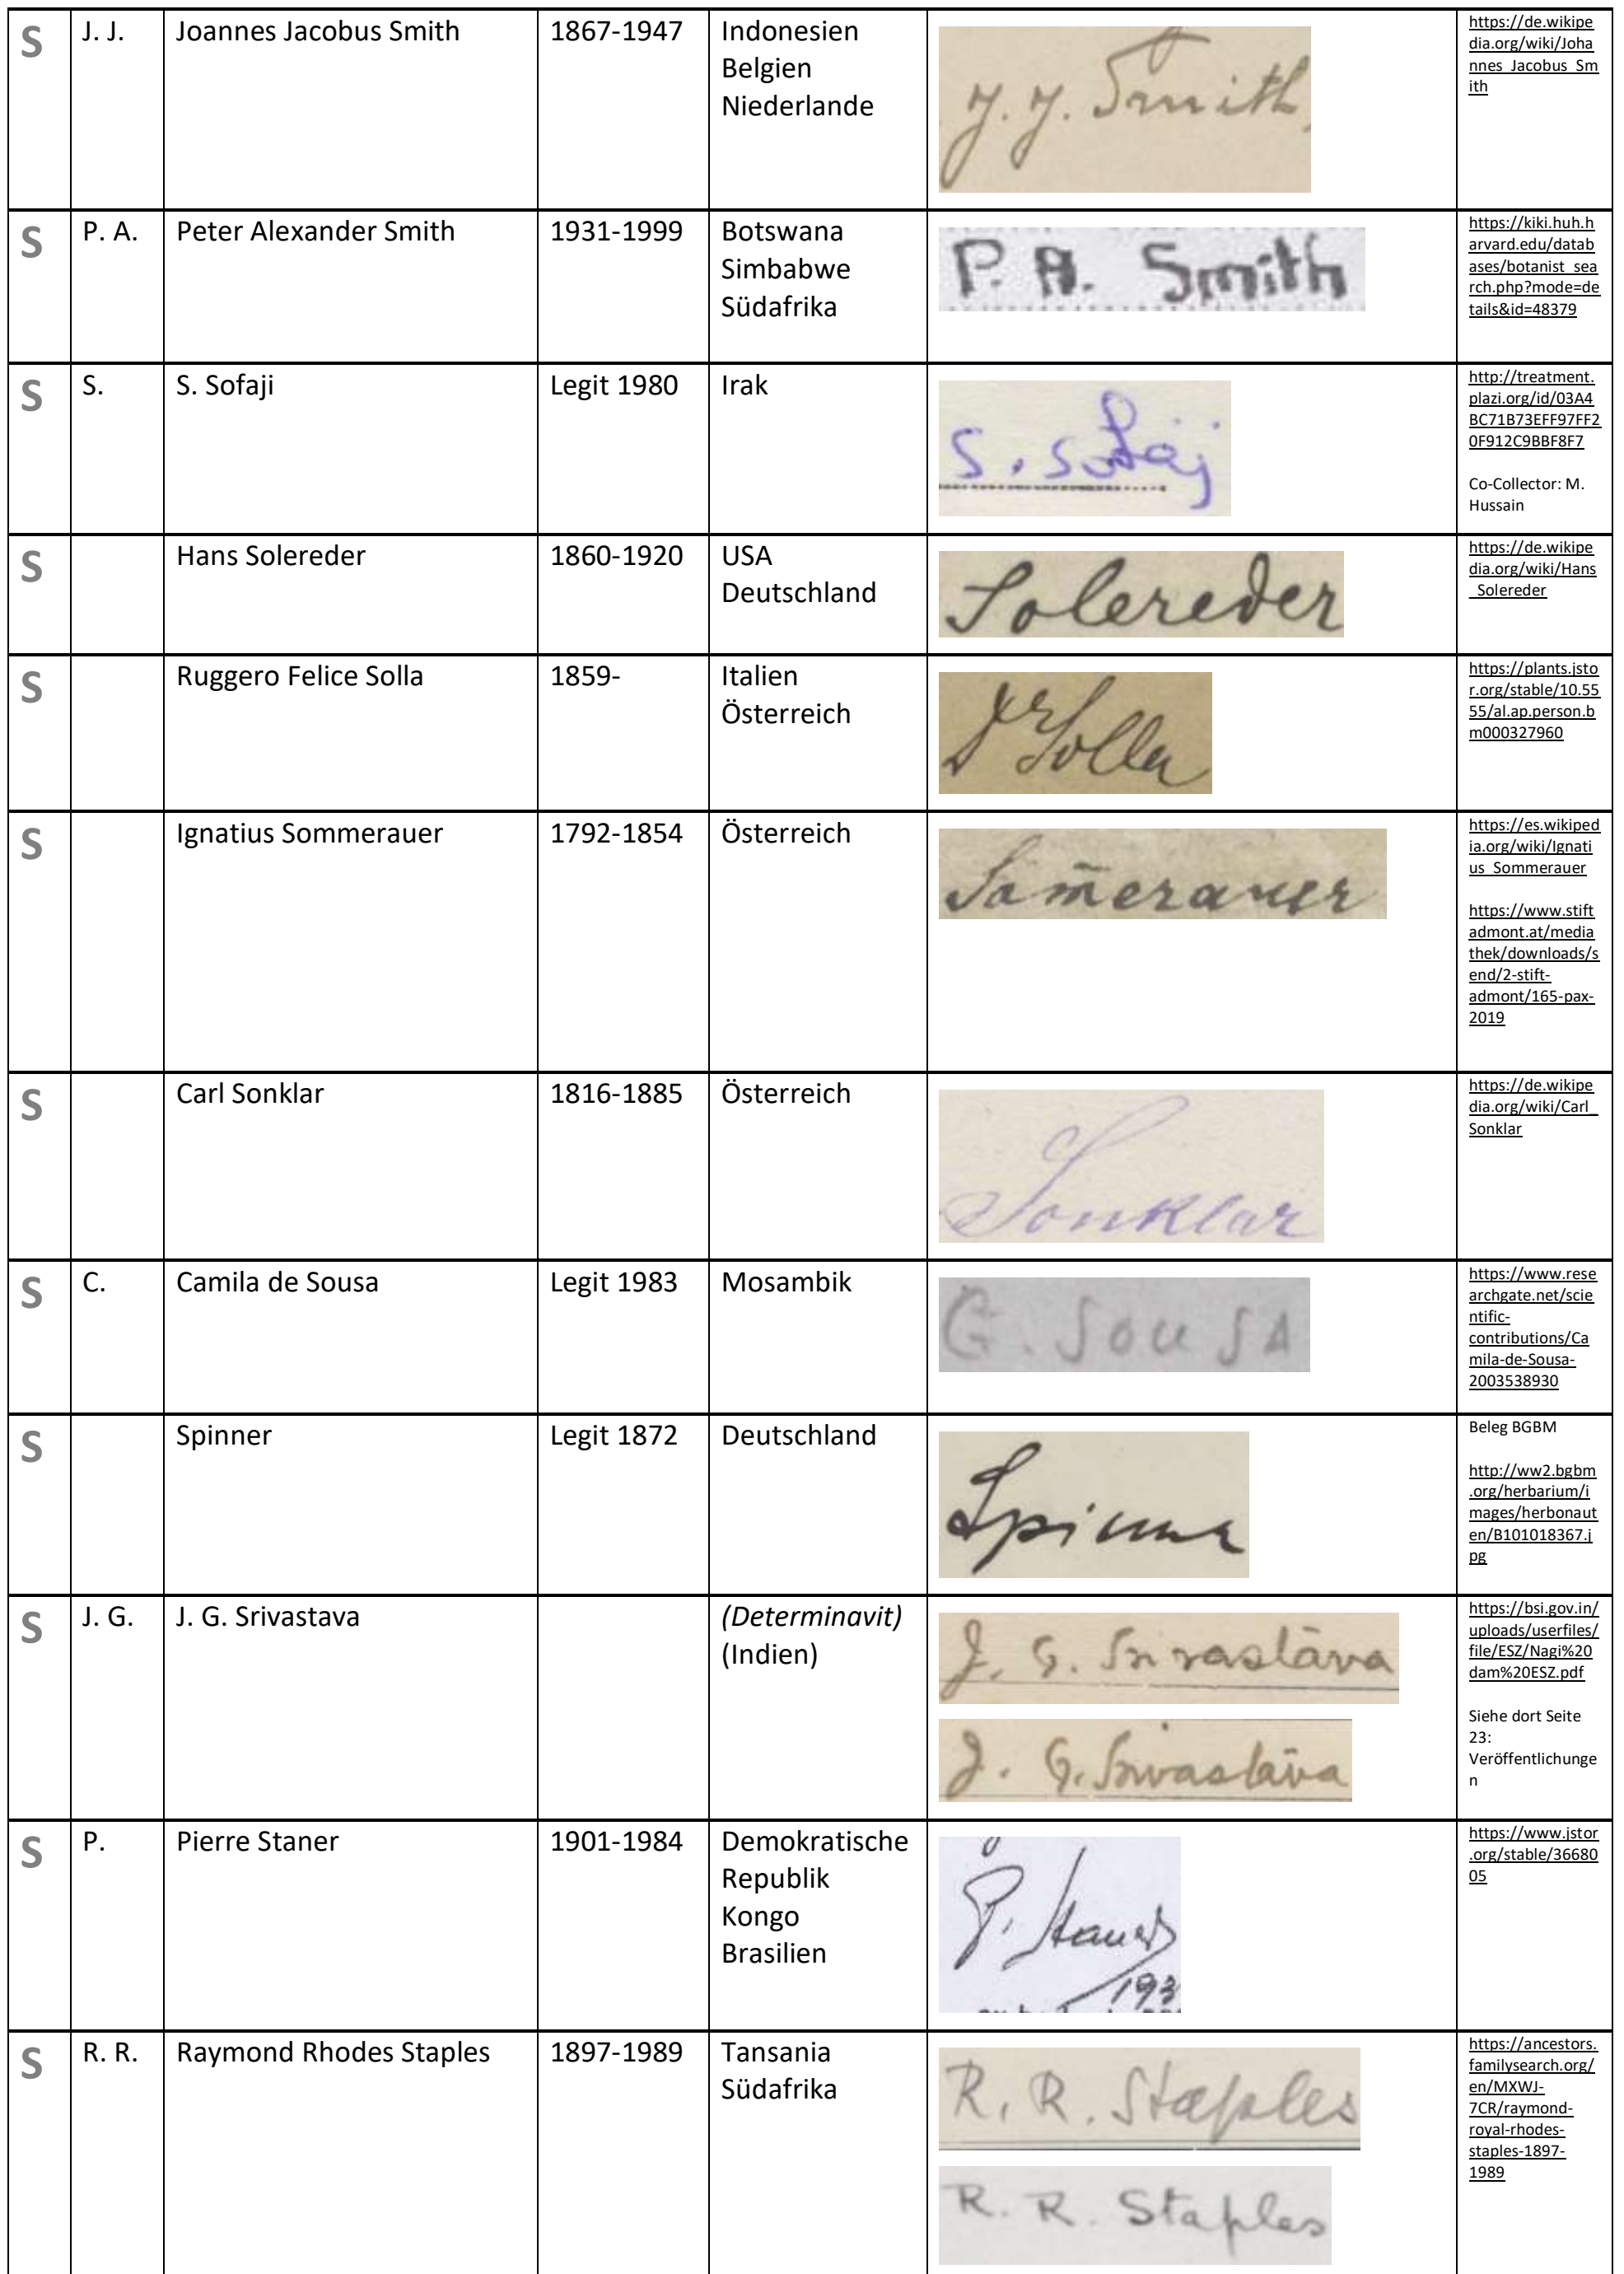 S J. J. Joannes Jacobus Smith 1867-1947 Indonesien
Belgien
Niederlande
J. J. Smith
https://de.wikipe
dia.org/wiki/Joha
nnes_Jacobus_Sm
ith
S P. A. Peter Alexander Smith 1931-1999 Botswana
Simbabwe
Südafrika
P. A. Smith
https://kiki.huh.h
arvard.edu/datab
ases/botanist_sea
rch.php?mode=de
tails&id=48379
S S. S. Sofaji Legit 1980 Irak
S. Sofaj
http://treatment.
plazi.org/id/03A4
BC71B73EFF97FF2
0F912C9BBF8F7
Co-Collector: M.
Hussain
S Hans Solereder 1860-1920 USA
Deutschland
Solereder
https://de.wikipe
dia.org/wiki/Hans
_Solereder
S Ruggero Felice Solla 1859- Italien
Österreich
Dr Solla
https://plants.jsto
r.org/stable/10.55
55/al.ap.person.b
m000327960
S Ignatius Sommerauer 1792-1854 Österreich
Som̄erauer
https://es.wikiped
ia.org/wiki/Ignati
us_Sommerauer
https://www.stift
admont.at/media
thek/downloads/s
end/2-stift-
admont/165-pax-
2019
S Carl Sonklar 1816-1885 Österreich
Sonklar
https://de.wikipe
dia.org/wiki/Carl_
Sonklar
S C. Camila de Sousa Legit 1983 Mosambik
C. Sousa
https://www.rese
archgate.net/scie
ntific-
contributions/Ca
mila-de-Sousa-
2003538930
S Spinner Legit 1872 Deutschland
Spinner
Beleg BGBM
http://ww2.bgbm
.org/herbarium/i
mages/herbonaut
en/B101018367.j
pg
S J. G. J. G. Srivastava (Determinavit)
(Indien)
J. G. Srivastāva
J. G. Srivastāva
https://bsi.gov.in/
uploads/userfiles/
file/ESZ/Nagi%20
dam%20ESZ.pdf
Siehe dort Seite
23:
Veröffentlichunge
n
S P. Pierre Staner 1901-1984 Demokratische
Republik
Kongo
Brasilien
P. Staner
193
https://www.jstor
.org/stable/36680
05
S R. R. Raymond Rhodes Staples 1897-1989 Tansania
Südafrika
R. R. Staples
R. R. Staples
https://ancestors.
familysearch.org/
en/MXWJ-
7CR/raymond-
royal-rhodes-
staples-1897-
1989